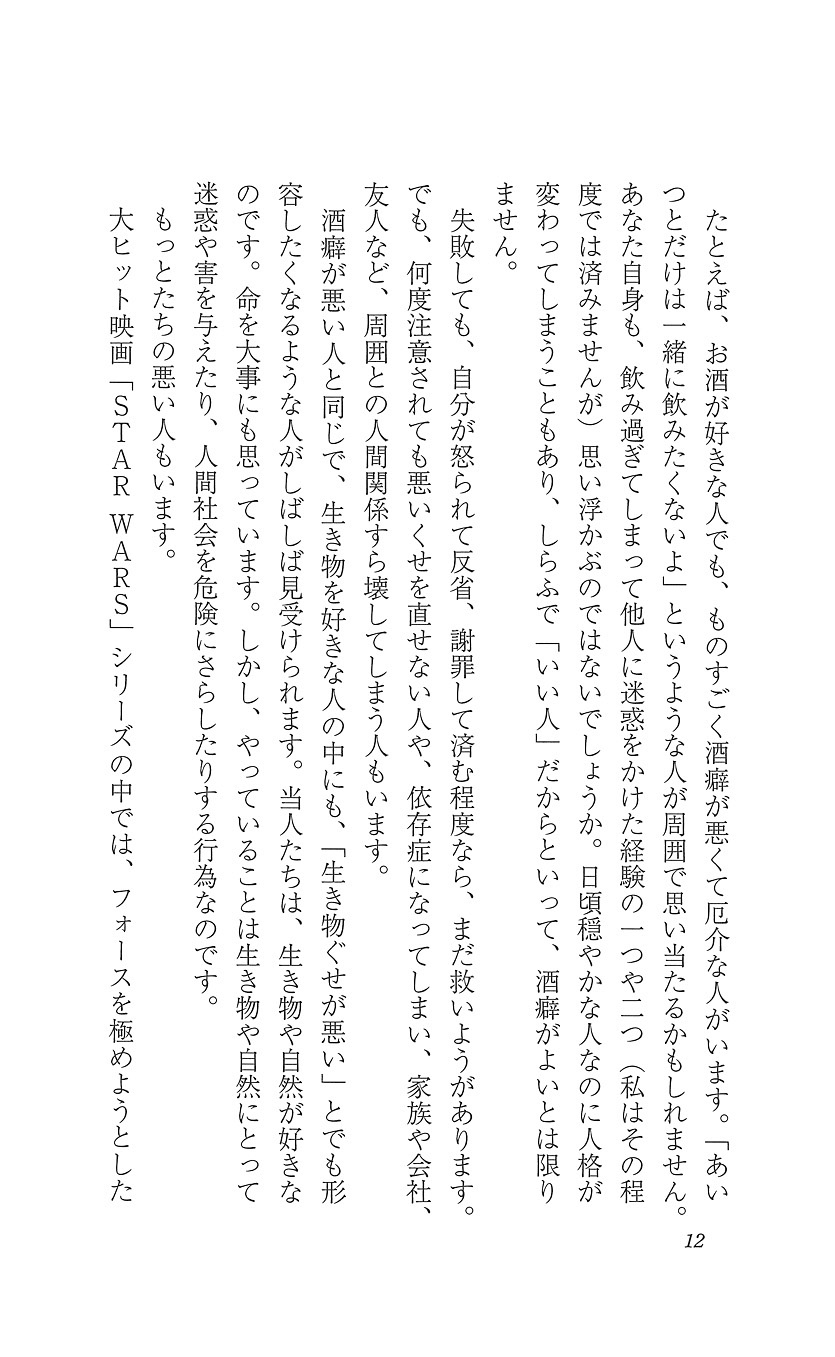 たとえば、お酒が好きな人でも、ものすごく酒癖が悪くて厄介な人がいます。「あい
つとだけは一緒に飲みたくないよ」というような人が周囲で思い当たるかもしれません。
あなた自身も、飲み過ぎてしまって他人に迷惑をかけた経験の一つや二つ（私はその程
度では済みませんが）思い浮かぶのではないでしょうか。日頃穏やかな人なのに人格が
変わってしまうこともあり、しらふで「いい人」だからといって、酒癖がよいとは限り
ません。
失敗しても、自分が怒られて反省、謝罪して済む程度なら、まだ救いようがあります。
でも、何度注意されても悪いくせを直せない人や、依存症になってしまい、家族や会社、
友人など、周囲との人間関係すら壊してしまう人もいます。
酒癖が悪い人と同じで、生き物を好きな人の中にも、「生き物ぐせが悪い」とでも形
容したくなるような人がしばしば見受けられます。当人たちは、生き物や自然が好きな
のです。命を大事にも思っています。しかし、やっていることは生き物や自然にとって
迷惑や害を与えたり、人間社会を危険にさらしたりする行為なのです。
もっとたちの悪い人もいます。
大ヒット映画「STAR WARS」シリーズの中では、フォースを極めようとした
12